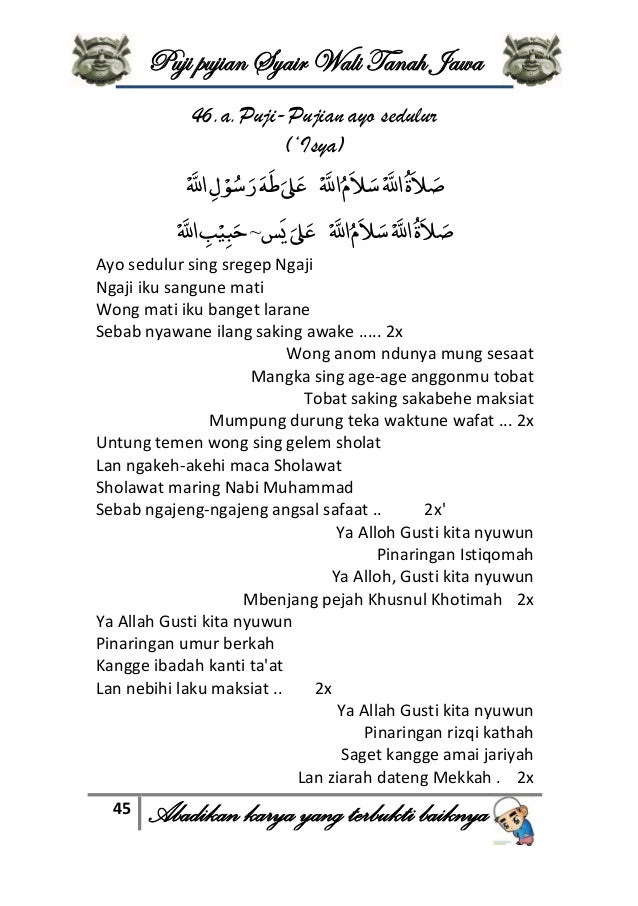 Puji pujian Syair Wali Tanah Jawa
46.a. Puji-Pujian ayo sedulur
('Isya)
صَلاَةُ اللهْ سَلاَمُ اللهْ عَلَى طَهَ رَسُوْلِ اللهْ
صَلاَةُ اللهْ سَلاَمُ اللهْ عَلَى يَس~ حَبِيْبِ اللهْ
Ayo sedulur sing sregep Ngaji
Ngaji iku sangune mati
Wong mati iku banget larane
Sebab nyawane ilang saking awake ..... 2x
Wong anom ndunya mung sesaat
Mangka sing age-age anggonmu tobat
Tobat saking sakabehe maksiat
Mumpung durung teka waktune wafat ... 2x
Untung temen wong sing gelem sholat
Lan ngakeh-akehi maca Sholawat
Sholawat maring Nabi Muhammad
Sebab ngajeng-ngajeng angsal safaat .. 2x'
Ya Alloh Gusti kita nyuwun
Pinaringan Istiqomah
Ya Alloh, Gusti kita nyuwun
Mbenjang pejah Khusnul Khotimah 2x
Ya Allah Gusti kita nyuwun
Pinaringan umur berkah
Kangge ibadah kanti ta'at
Lan nebihi laku maksiat .. 2x
Ya Allah Gusti kita nyuwun
Pinaringan rizqi kathah
Saget kangge amai jariyah
Lan ziarah dateng Mekkah . 2x
45 Abadikan karya yang terbukti baiknya